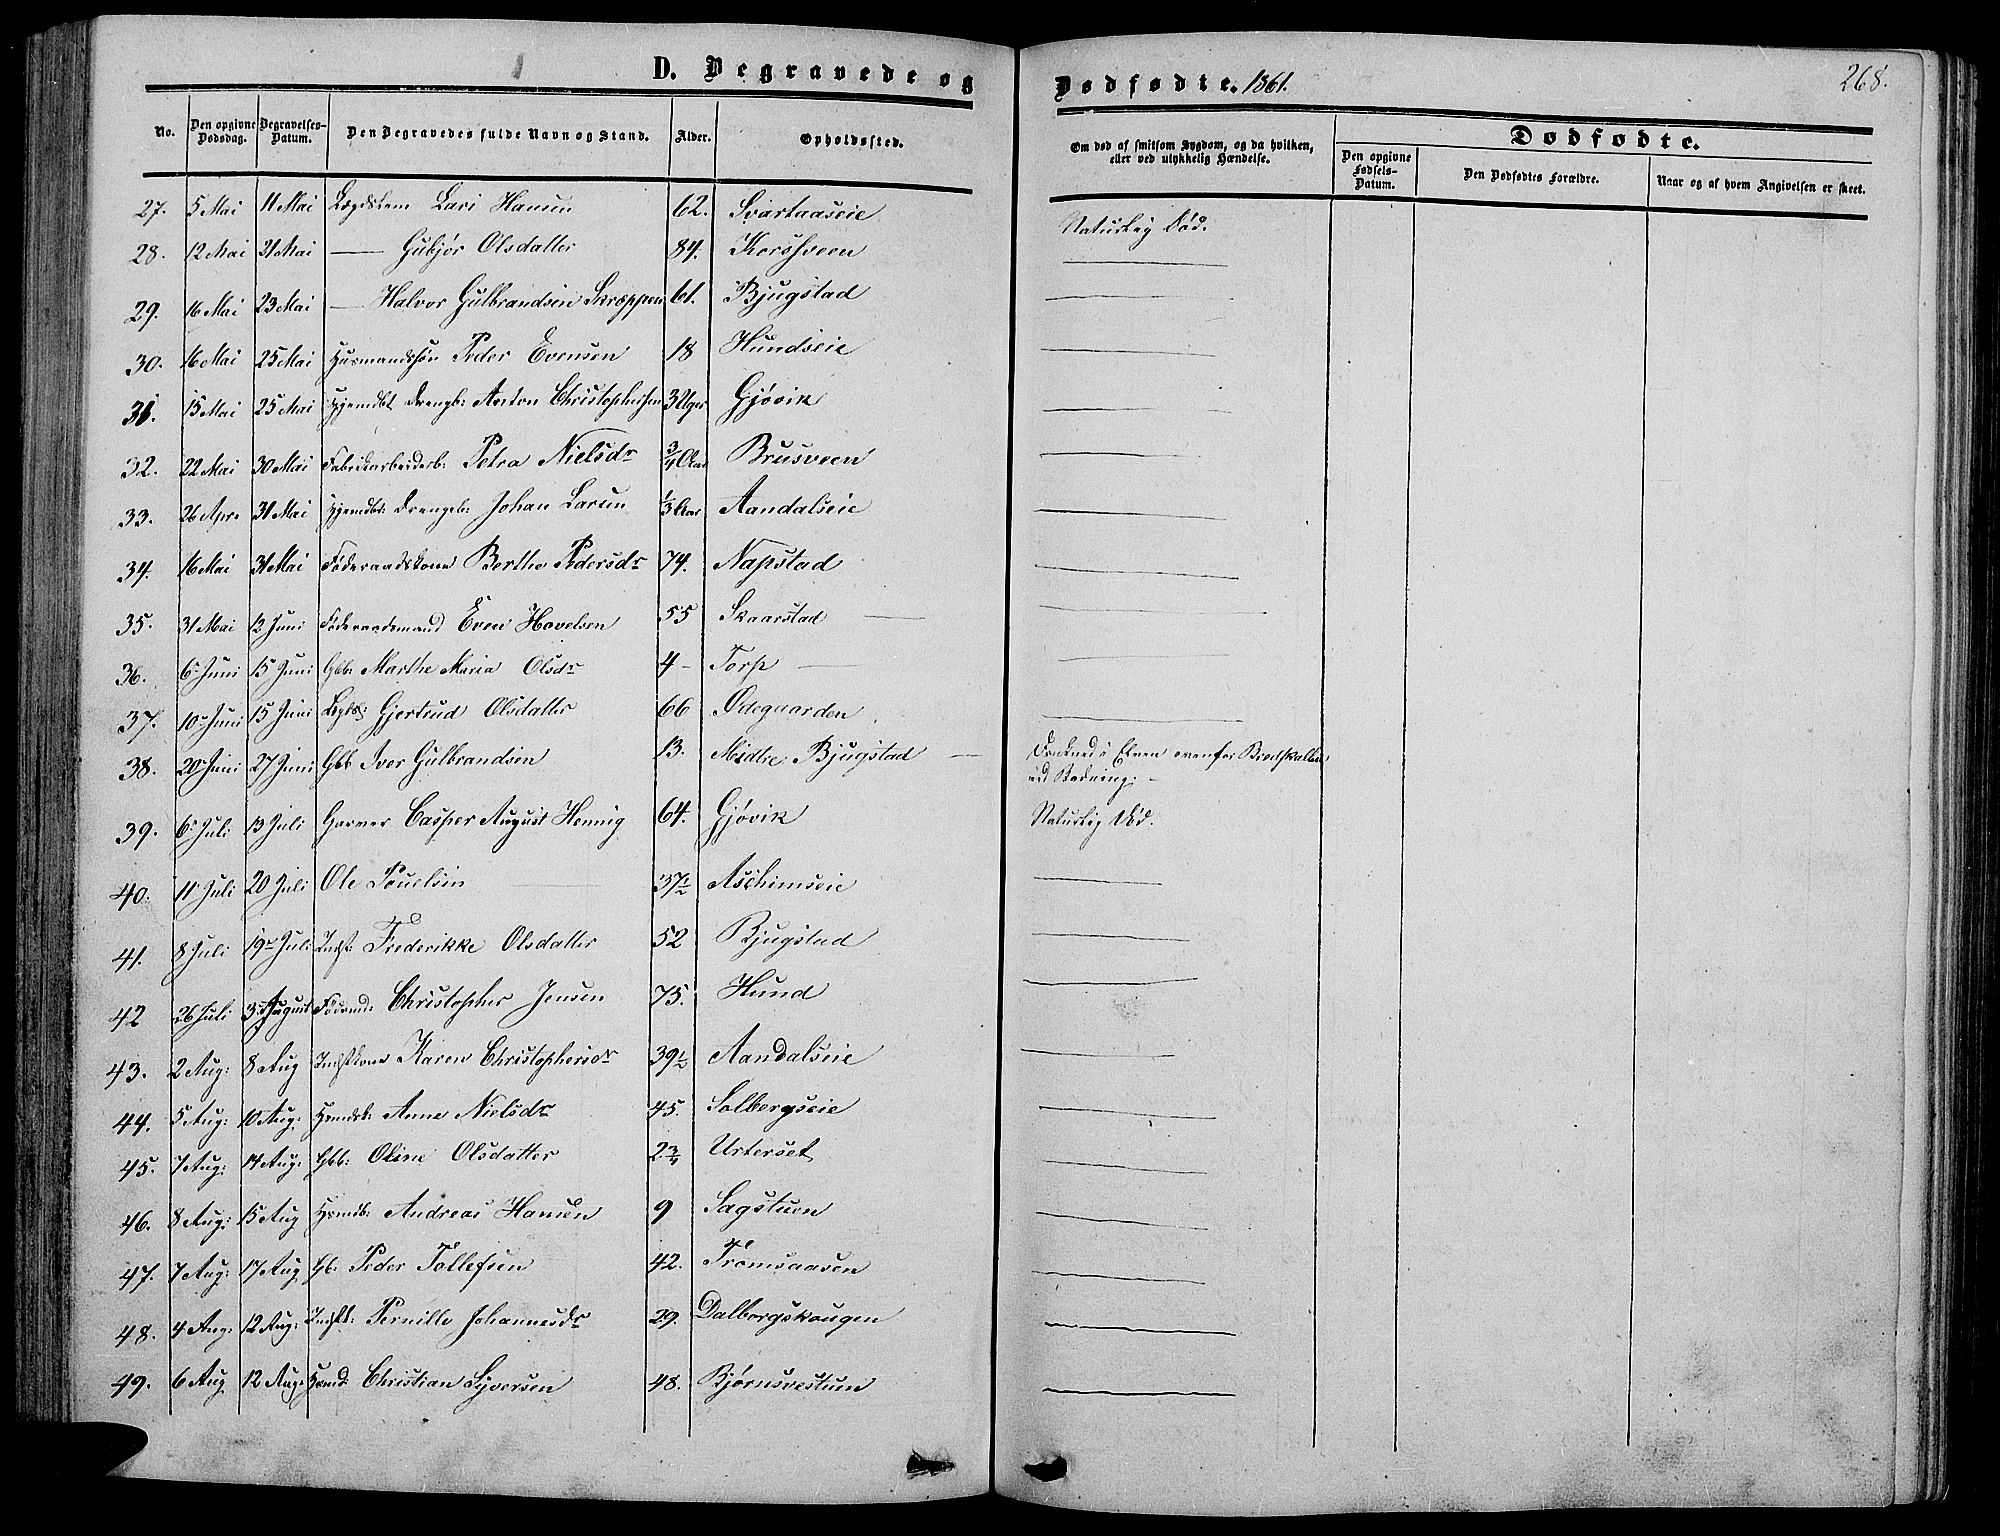 D. Begravede og Dødfødte. 1861. 268.
No. Den opgivne Dødsdag. Begravelses-Datum. Den Begravedes fulde Navn og Stand. Alder. Opholdssted. Om død af smitsom Sygdom, og da hvilken, eller ved ulykkelig Hændelse. Dødfødte.
Den opgivne Fødsels-Datum. Den Dødfødtes Forældre. Naar og af hvem Angivelsen er skeet.
27. 5 Mai 11 Mai Lægdslem Lars Hansen 62. Svartaaseie Naturlig Død.
28. 12 Mai 21 Mai — Gubjør Olsdatter 84. Korssveen —
29. 16 Mai 23 Mai — Halvor Gulbrandsen Skræppen 61. Bjugstad —
30. 16 Mai 25 Mai Huusmandssøn Peder Evensen 18 Hundseie —
31. 15 Mai 25 Mai Hjemdbt Drengb: Anton Christophersen 3 Uger Gjøvik —
32. 22 Mai 30 Mai Fabrikarbeiderb: Petra Nielsdr 3/4 Aar Brusveen —
33. 26 Apr. 31 Mai Hjemdbt: Drengeb: Johan Larsen 1/3 Aar Aandalseie —
34. 16 Mai 31 Mai Føderaadskone Berthe Pedersdr 74. Napstad —
35. 31 Mai 12 Juni Føderaadsmand Even Hovelsen 55 Skaarstad — —
36. 6 Juni 15 Juni Gbb: Marthe Maria Olsdr 4 - Torp — —
37. 10 Juni 15 Juni Lægdsl: Gjertrud Olsdatter 66 Ødegaarden —
38. 20 Juni 27 Juni Gbb Iver Gulbrandsen 13. Midtre Bjugstad — Druknede i Elven ovenfor Bredskallen
ved Badning: -
39. 6 Juli 13 Juli Garver Casper August Hennig 64. Gjøvik Naturlig Død.
40. 11 Juli 20 Juli Ole Pouelsen — 37 1/2 Aschimseie —
41. 8 Juli 19 Juli Indst: Frederikke Olsdatter 52 Bjugstad —
42 26 Juli 3 August Fødrmd: Christopher Jensen 75. Hund —
43. 2 Aug: 8 Aug Indstkone Karen Christophersdr 39 1/2 Aandalseie —
44. 5 Aug: 10 Aug: Hmdsk: Anne Nielsdr 45. Solbergseie —
45. 7 Aug: 14 Aug: Gbb: Oline Olsdatter 2 3/4 Urterset —
46. 8 Aug: 15 Aug Hsmdb: Andreas Hansen 9 Sagstuen —
47. 7 Aug: 17 Aug Gb: Peder Tollefsen 42. Tromsaasen —
48. 4 Aug: 12 Aug: Indstk: Pernille Johannesdr 29. Dalborgskougen —
49. 6 Aug 12 Aug. Hsmd: Christian Syversen 48. Bjørnsvestuen —